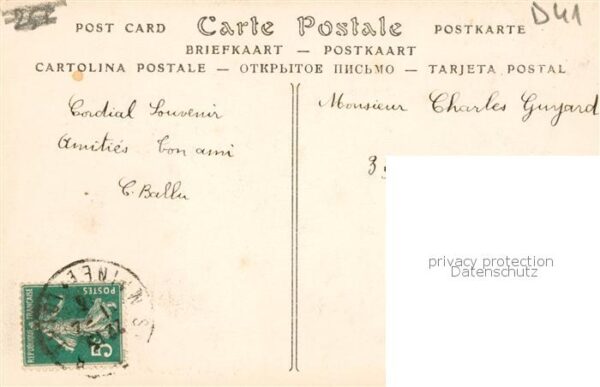 D41
POST CARD Carte Postale POSTKARTE
BRIEFKAART — POSTKAART
CARTOLINA POSTALE — ОТКРЫТОЕ ПИСЬМО — TARJETA POSTAL
Cordial Souvenir
Amitiés bon ami
C. Ballu
Monsieur Charles Guyard
privacy protection
Datenschutz
REPUBLIQUE FRANÇAISE
POSTES
5